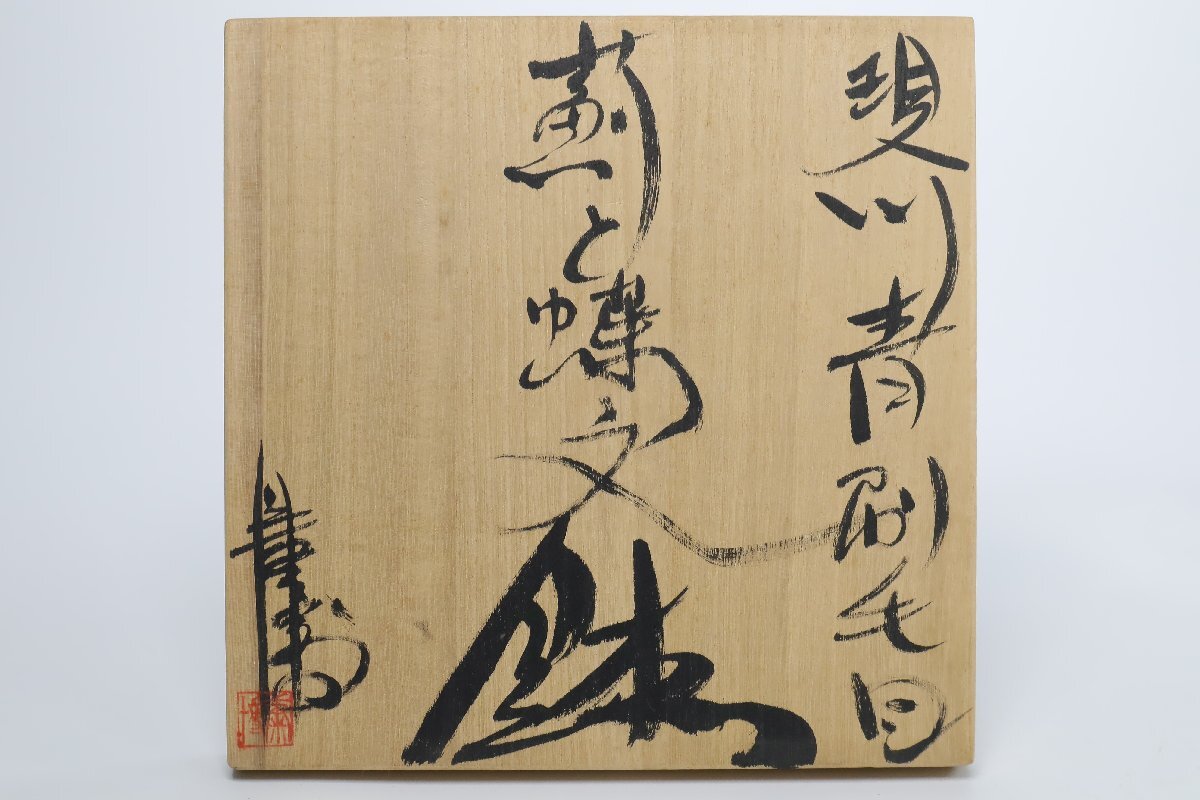 現川青刷毛目
薊と蝶文
鉢